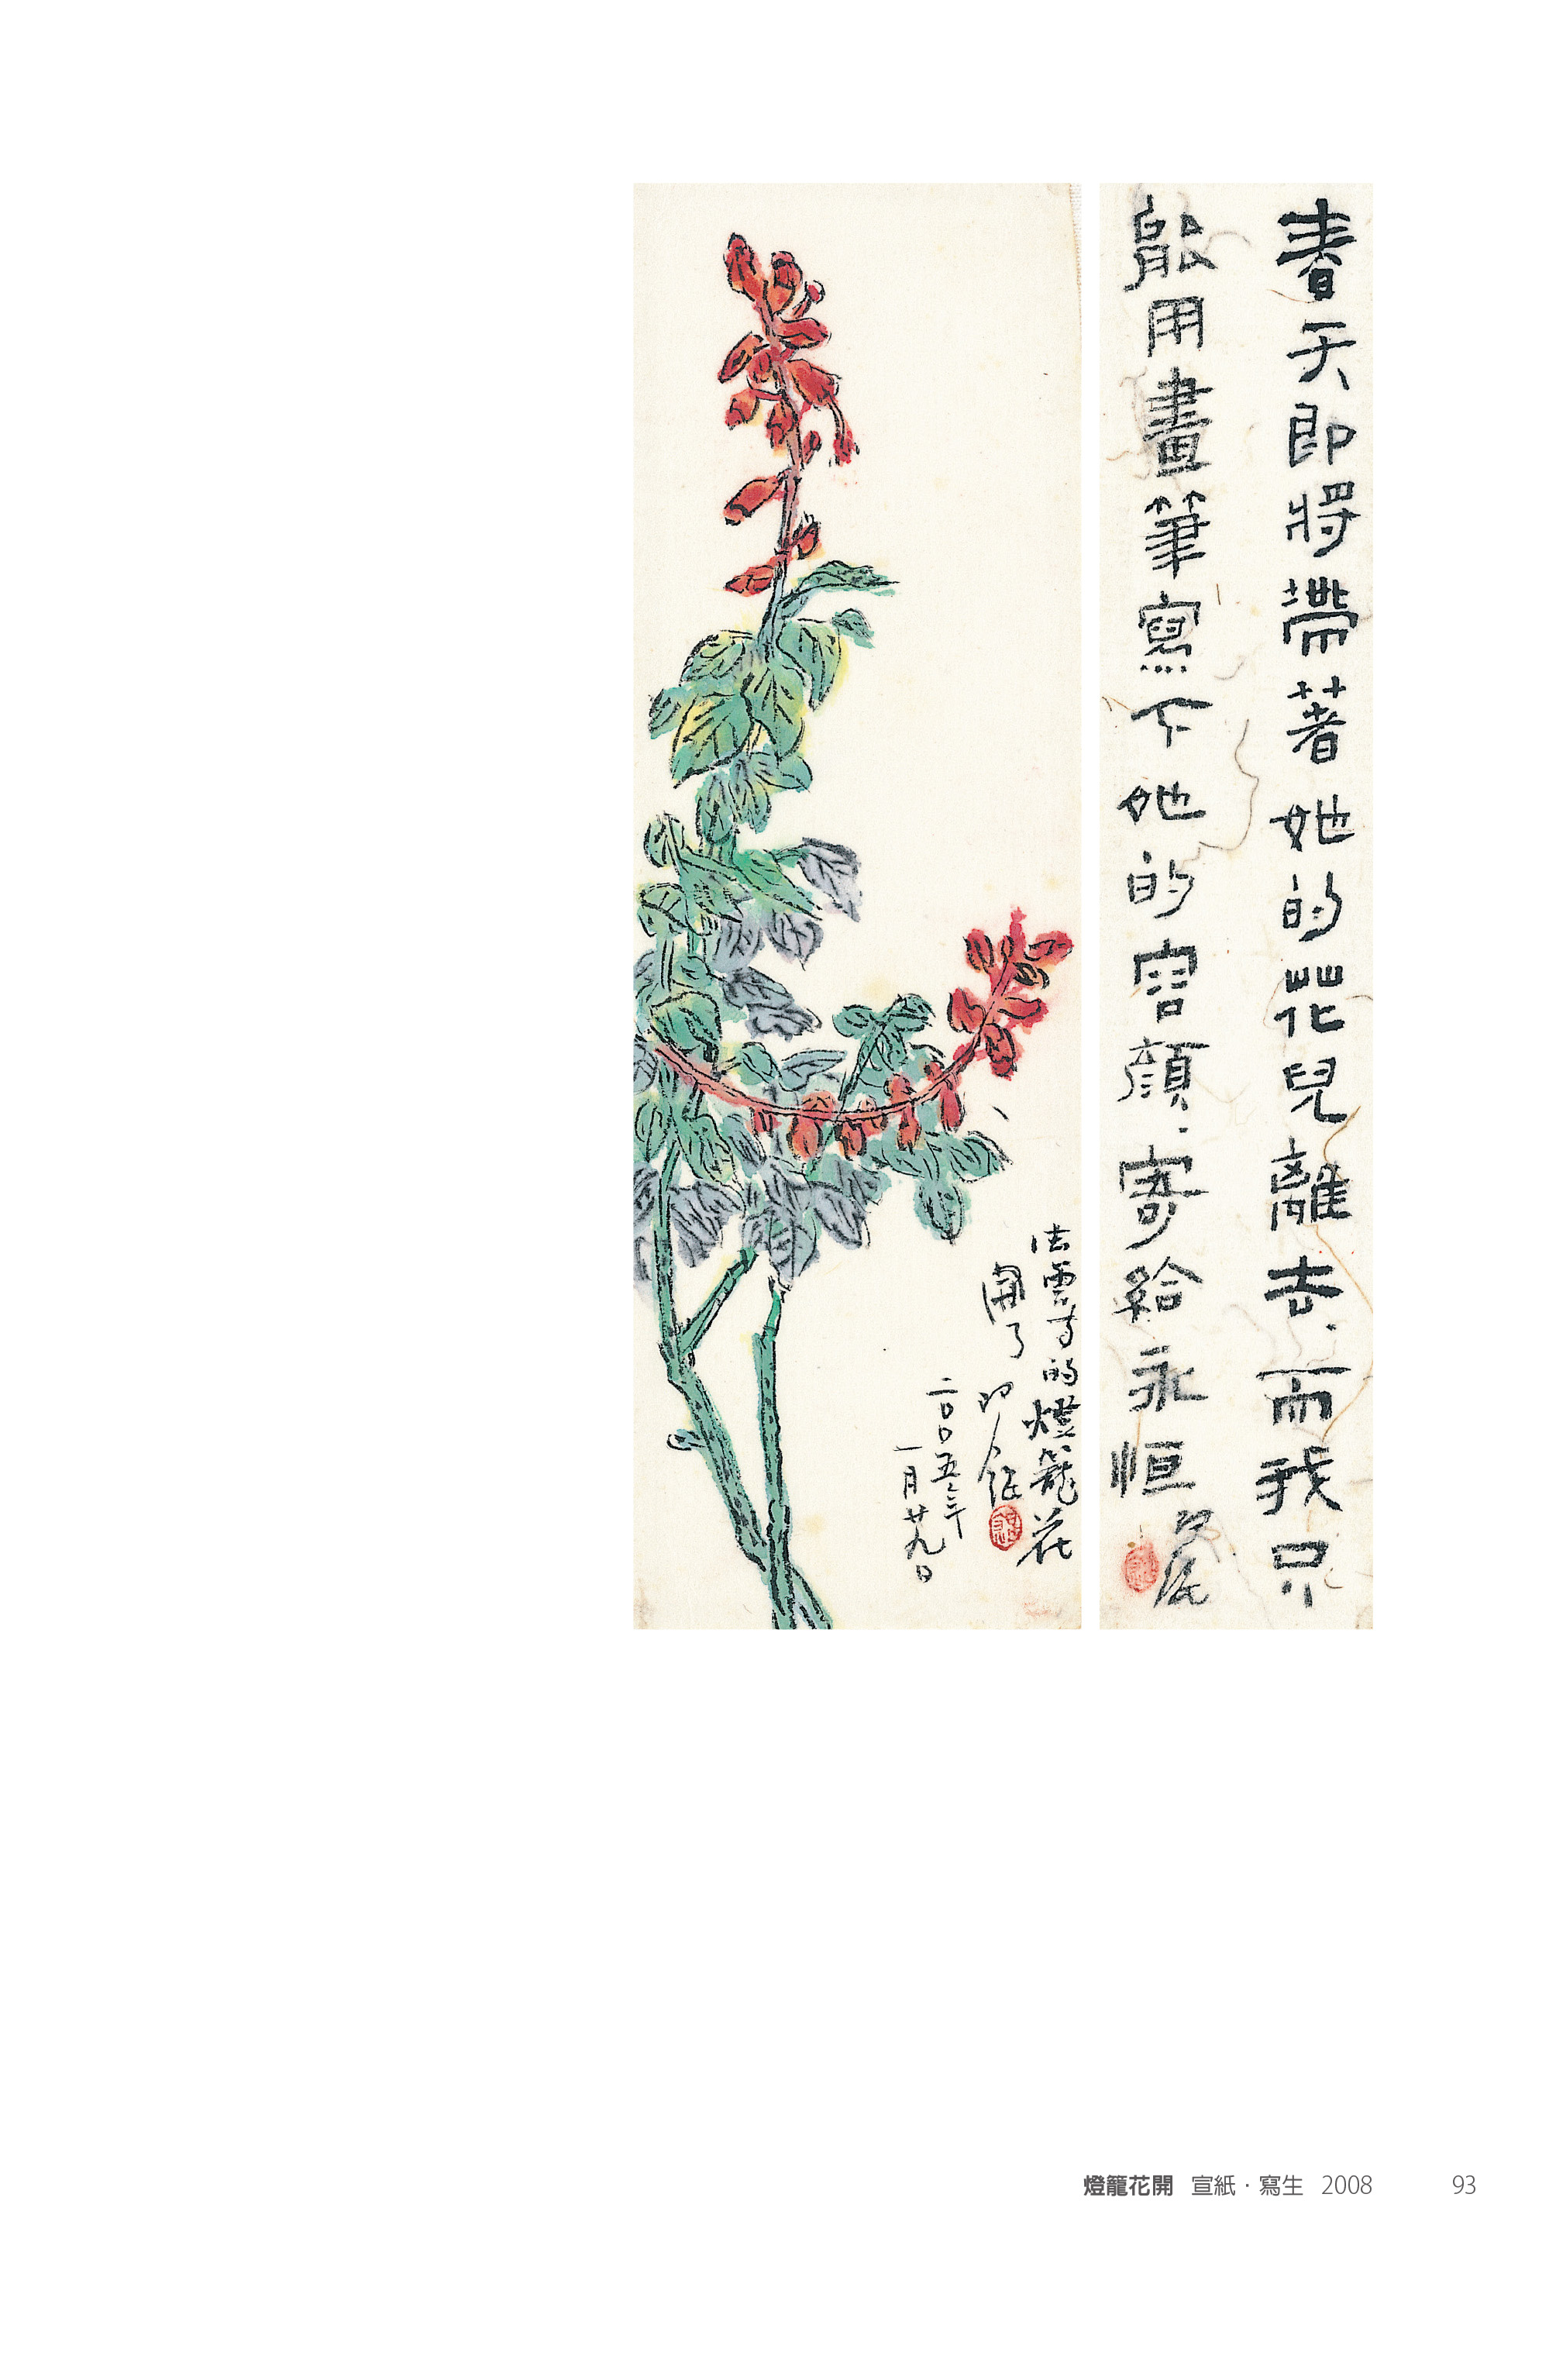 春天即將帶著她的花兒離去、而我只
能用畫筆寫下她的容顏、寄給永恒
法雲寺的燈籠花
開了
二〇〇五年
一月廿九日
燈籠花開 宣紙·寫生 2008
93